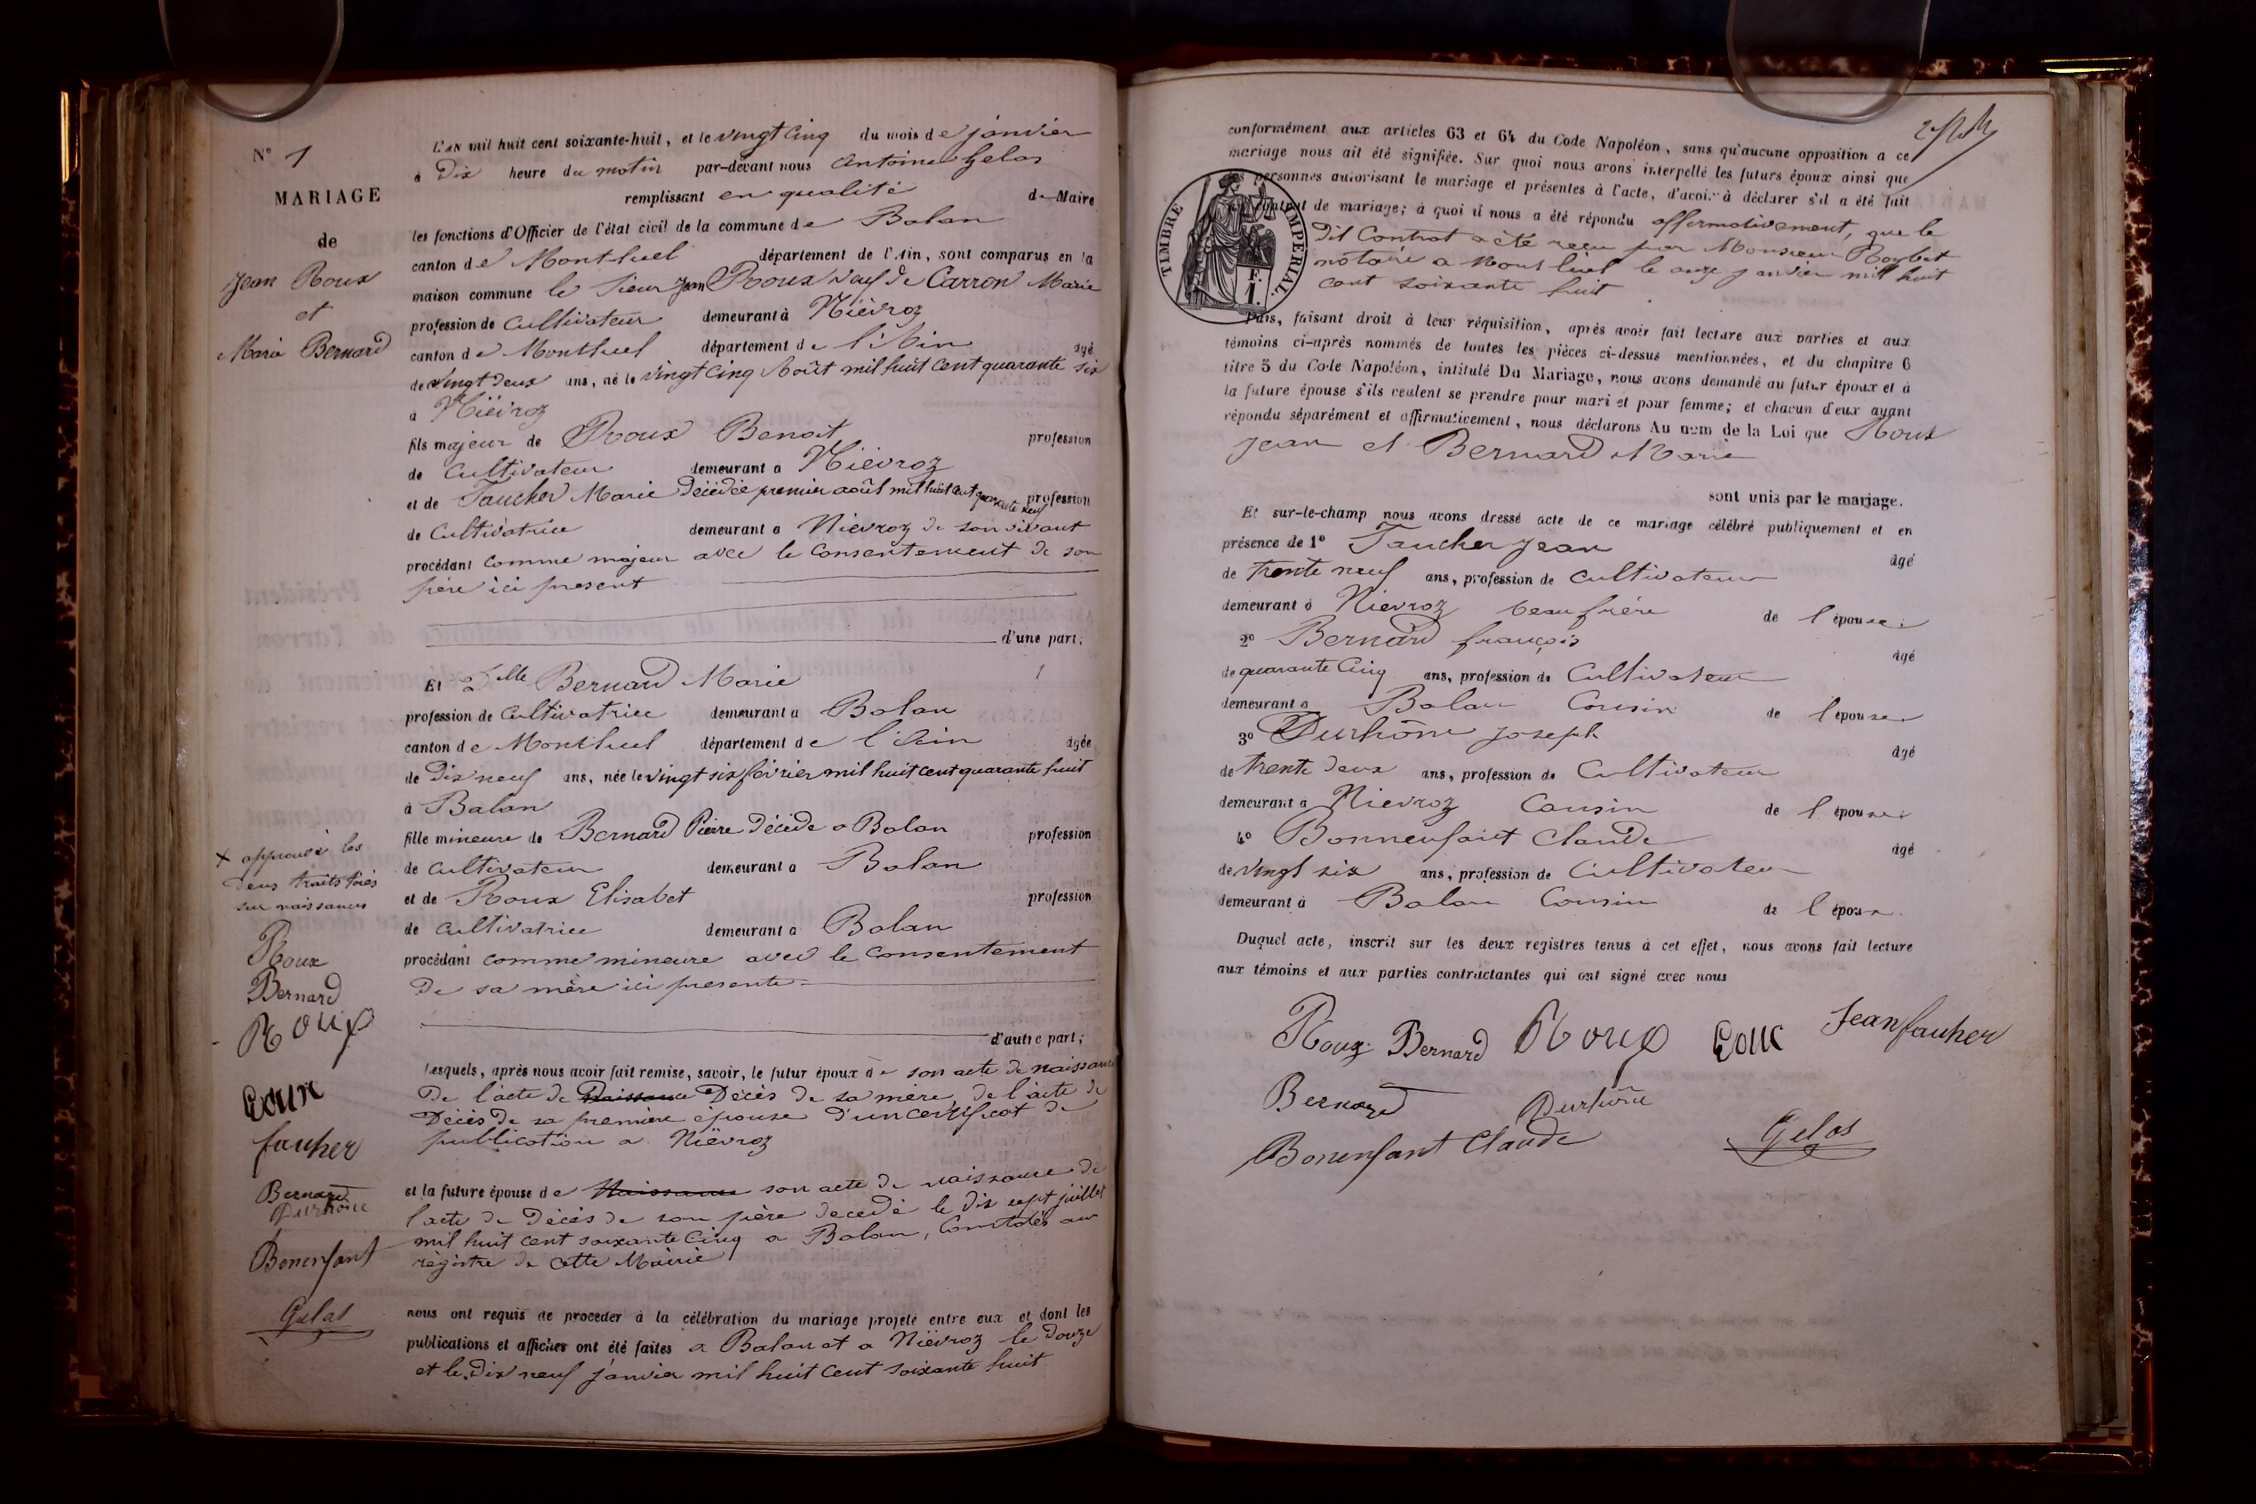 N° 1
MARIAGE
de
Jean Roux
et
Marie Bernard
L'AN mil huit cent soixante-huit, et le vingt Cinq du mois de janvier
à Dix heure du matin par-devant nous Antoine Gelas
remplissant en qualité de Maire
les fonctions d'Officier de l'état civil de la commune de Balan
canton de Montluel département de l'Ain, sont comparus en la
maison commune le Sieur Jean Roux veuf de Carron Marie
profession de Cultivateur demeurant à Niévroz
canton de Montluel département de l'Ain âgé
de vingt deux ans, né le vingt cinq Août mil huit cent quarante six
à Niévroz
fils majeur de Roux Benoit profession
de Cultivateur demeurant a Niévroz
et de Faucher Marie Décédée premier août mil huit cent quarante neuf profession
de Cultivatrice demeurant a Niévroz de son vivant
procédant comme majeur avec le Consentement de son
père ici present
d'une part;
Et Dlle Bernard Marie
profession de Cultivatrice demeurant a Balan
canton de Montluel département de l'Ain âgée
de Dix neuf ans, née le vingt six février mil huit cent quarante huit
à Balan
fille mineure de Bernard Pierre Décédé a Balan profession
de Cultivateur demeurant a Balan
et de Roux Elisabet profession
de Cultivatrice demeurant a Balan
procédant comme mineure avec le Consentement
De sa mère ici presente
d'autre part;
Lesquels, après nous avoir fait remise, savoir, le futur époux de son acte de naissance
De l'acte de Naissance Décès de sa mère, de l'acte de
Décès de sa première épouse D'un certificat de
publication a Niévroz
et la future épouse de Naissance son acte de naissance de
l'acte de Décès de son père decedé le dix sept juillet
mil huit cent soixante Cinq a Balan, Constatés au
régistre de cette Mairie
nous ont requis de proceder à la célébration du mariage projeté entre eux et dont les
publications et affiches ont été faites a Balan et a Niévroz le Douze
et le Dix neuf janvier mil huit cent soixante huit
+ approuvé les
Deux traits tirés
sur naissances
Roux
Bernard
Roux
Roux
faucher
Bernard
Durhône
Bonenfant
Gelas
conformément aux articles 63 et 64 du Code Napoléon, sans qu'aucune opposition a ce
mariage nous ait été signifiée. Sur quoi nous avons interpellé les futurs époux ainsi que
les personnes autorisant le mariage et présentes à l'acte, d'avoir à déclarer s'il a été fait
contrat de mariage; à quoi il nous a été répondu affirmativement, que le
Dit Contrat a été reçu par Monsieur Roybet
notaire a Montluel le onze janvier mil huit
cent soixante huit
TIMBRE IMPÉRIAL.
F.
1.
Puis, faisant droit à leur réquisition, après avoir fait lecture aux parties et aux
témoins ci-après nommés de toutes les pièces ci-dessus mentionnées, et du chapitre 6
titre 5 du Code Napoléon, intitulé Du Mariage, nous avons demandé au futur époux et à
la future épouse s'ils veulent se prendre pour mari et pour femme; et chacun d'eux ayant
répondu séparément et affirmativement, nous déclarons Au nom de la Loi que Roux
Jean et Bernard Marie
sont unis par le mariage.
Et sur-le-champ nous avons dressé acte de ce mariage célébré publiquement et en
présence de 1° Faucher Jean âgé
de trente neuf ans, profession de Cultivateur
demeurant à Niévroz beau frère de l'épouse
2° Bernard françois âgé
de quarante Cinq ans, profession de Cultivateur
demeurant a Balan Cousin de l'épouse
3° Durhône Joseph âgé
de trente deux ans, profession de Cultivateur
demeurant a Niévroz Cousin de l'épouse
4° Bonnenfant Claude âgé
de vingt six ans, profession de Cultivateur
demeurant à Balan Cousin de l'épouse
Duquel acte, inscrit sur les deux registres tenus à cet effet, nous avons fait lecture
aux témoins et aux parties contractantes qui ont signé avec nous
Roux Bernard Roux Roux Jean faucher
Bernard Durhône
Bonenfant Claude Gelas